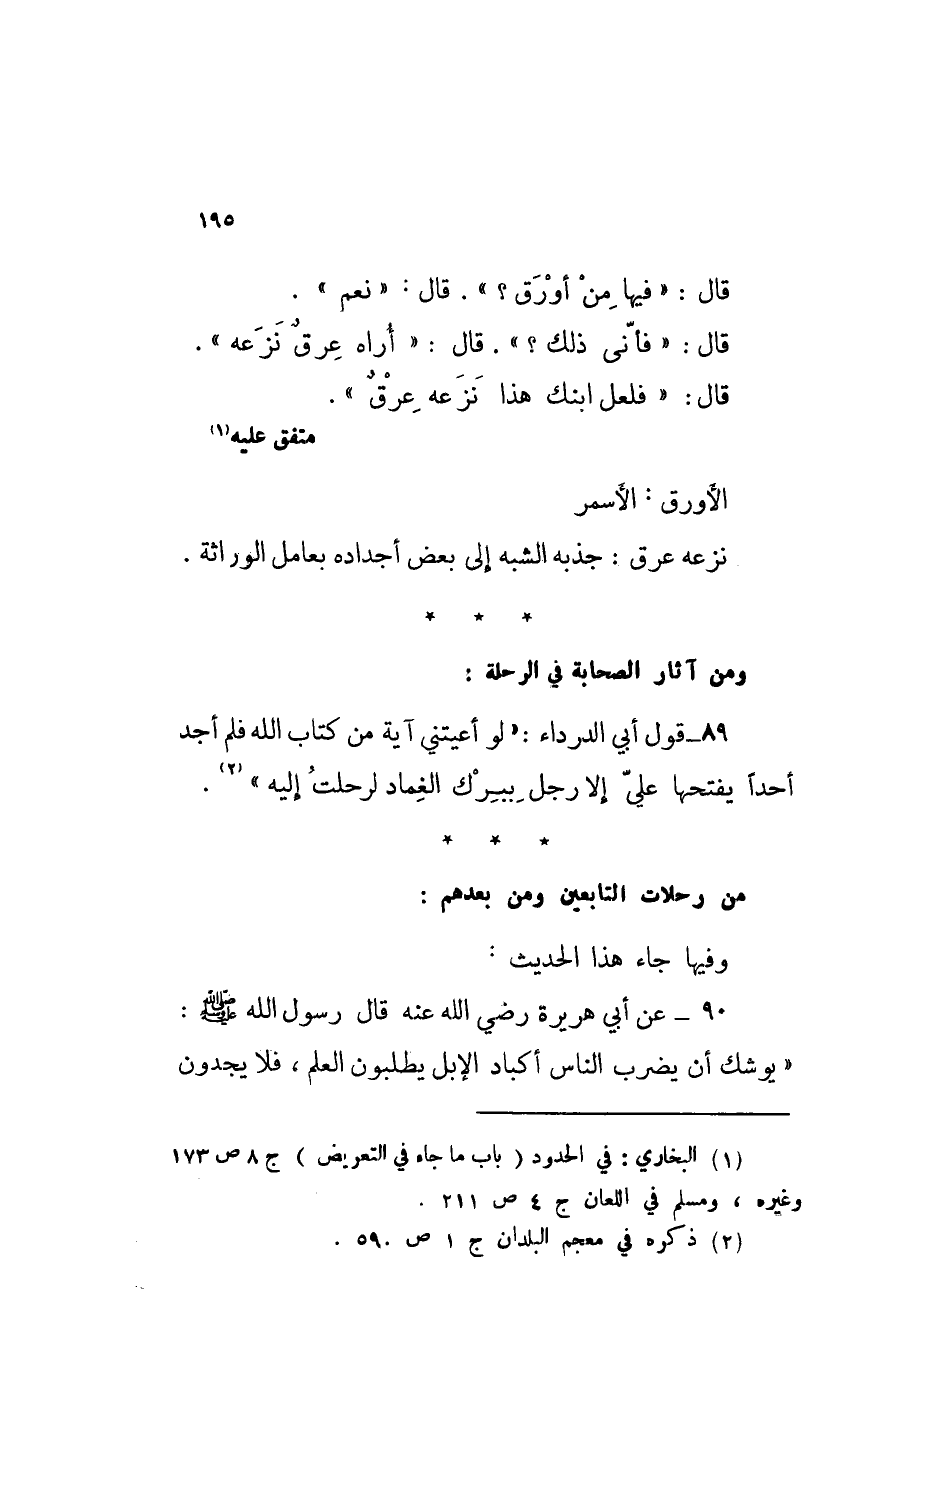 ١٩٥
قال : « فيها مِنْ أوْرَق ؟ » . قال : « نعم » .
قال : « فأنّى ذلك ؟ » . قال : « أُراه عِرقٌ نَزَعه » .
قال : « فلعل ابنك هذا نَزَعه عِرْقٌ » .
متفق عليه(١)
الأورق : الأسمر
نزعه عرق : جذبه الشبه إلى بعض أجداده بعامل الوراثة .
* * *
ومن آثار الصحابة في الرحلة :
٨٩ـ قول أبي الدرداء : « لو أعيتني آية من كتاب الله فلم أجد
أحداً يفتحها عليّ إلا رجل بِبِرْك الغِماد لرحلتُ إليه » (٢) .
* * *
من رحلات التابعين ومن بعدهم :
وفيها جاء هذا الحديث :
٩٠ ـ عن أبي هريرة رضي الله عنه قال رسول الله ﷺ :
« يوشك أن يضرب الناس أكباد الإبل يطلبون العلم ، فلا يجدون
(١) البخاري : في الحدود ( باب ما جاء في التعريض ) ج ٨ ص ١٧٣
وغيره ، ومسلم في اللعان ج ٤ ص ٢١١ .
(٢) ذكره في معجم البلدان ج ١ ص ٥٩٠ .